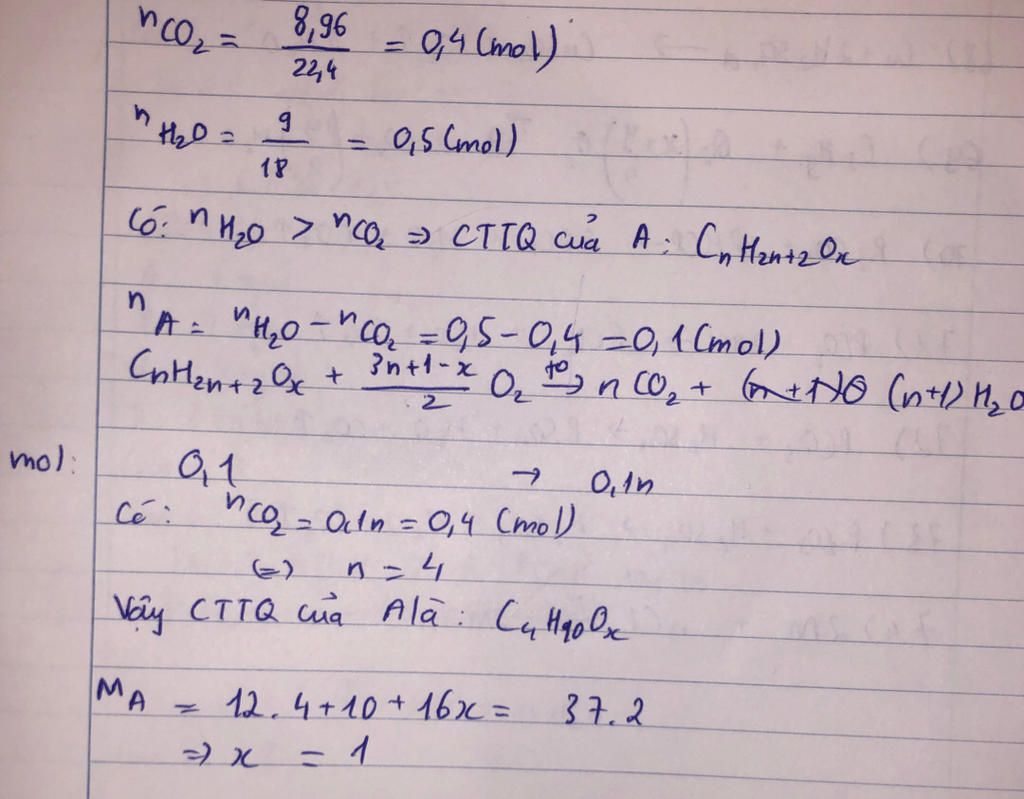 nCO₂ = 8,96/22,4 = 0,4 (mol)
nH₂O = 9/18 = 0,5 (mol)
Có: nH₂O > nCO₂ => CTTQ của A: CnH2n+2Ox
nA = nH₂O - nCO₂ = 0,5 - 0,4 = 0,1 (mol)
CnH2n+2Ox + (3n+1-x)/2 O₂ t° → n CO₂ + (n+1) H₂O
mol: 0,1 → 0,1n
Có: nCO₂ = 0,1n = 0,4 (mol)
(=) n = 4
Vậy CTTQ của A là: C₄H₁₀Ox
MA = 12.4+10+16x = 37.2
=> x = 1